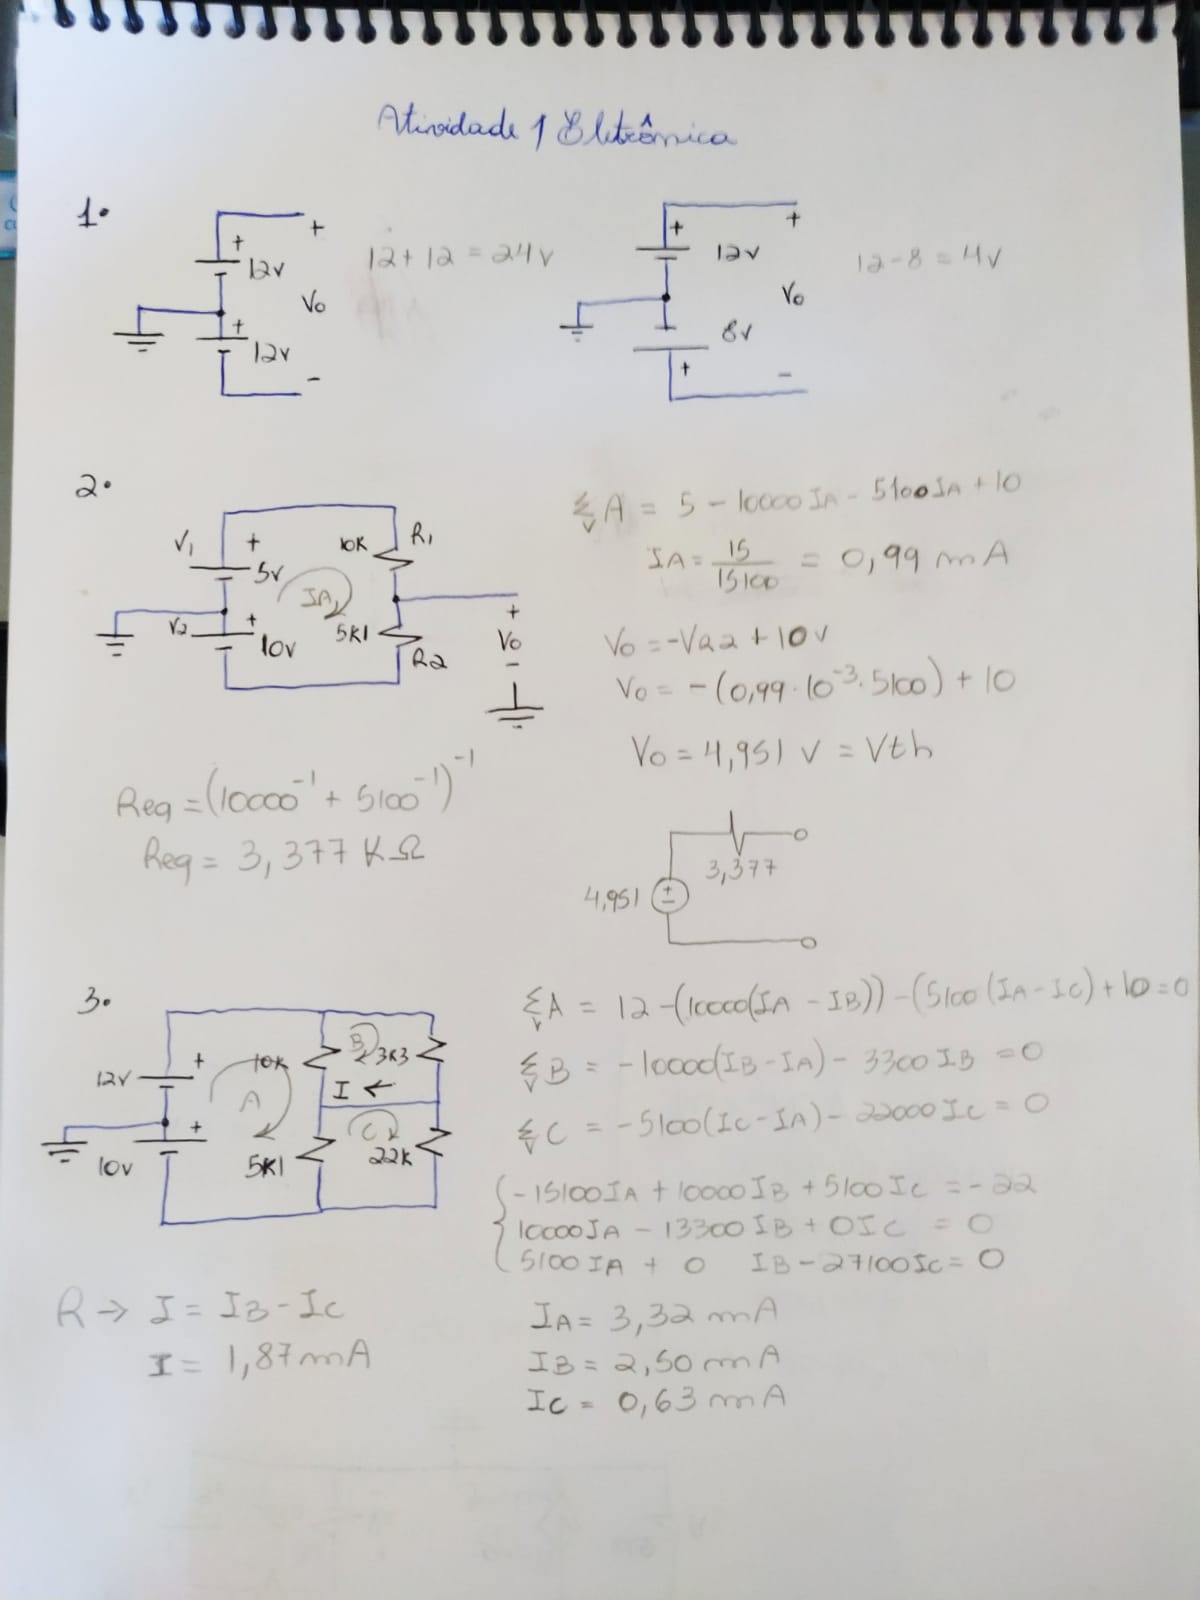 Atividade 1 Eletrônica
1.
+
+
12v
12 + 12 = 24v
Vo
+
12v
-
+
+
12v
12 - 8 = 4v
Vo
8v
+
-
2.
V1
+
5v
10K
R1
IA
V2
+
10v
5K1
R2
+
Vo
-
ΣvA = 5 - 10000IA - 5100IA + 10
IA = 15/15100 = 0,99 mA
Vo = -VR2 + 10v
Vo = -(0,99·10⁻³·5100) + 10
Vo = 4,951 v = Vth
Req = (10000⁻¹ + 5100⁻¹)⁻¹
Req = 3,377 KΩ
3,377
4,951
+
-
3.
12v
+
10K
B
3K3
I ←
A
+
10v
5K1
C
22K
ΣvA = 12 - (10000(IA - IB)) - (5100(IA - IC) + 10 = 0
ΣvB = -10000(IB - IA) - 3300IB = 0
ΣvC = -5100(IC - IA) - 22000IC = 0
-15100IA + 10000IB + 5100IC = -22
10000IA - 13300IB + 0IC = 0
5100IA + 0 IB - 27100IC = 0
R → I = IB - IC
I = 1,87mA
IA = 3,32 mA
IB = 2,50 mA
IC = 0,63 mA